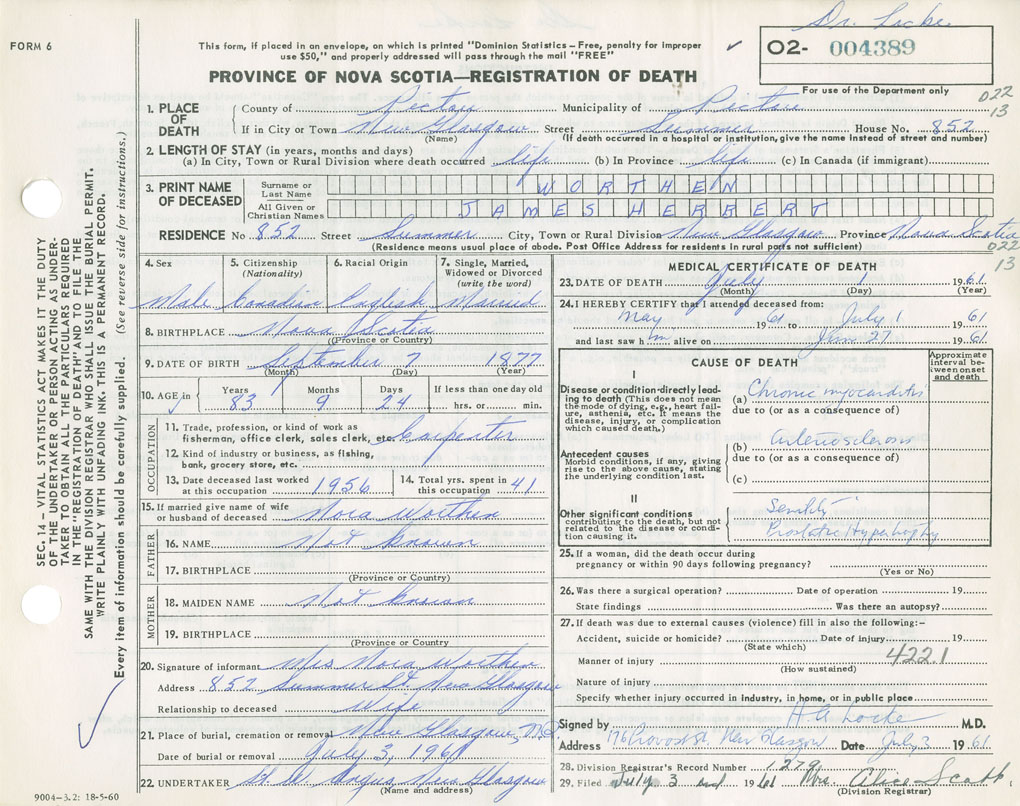 Dr. Locke
FORM 6
This form, if placed in an envelope, on which is printed "Dominion Statistics – Free, penalty for improper
use $50," and properly addressed will pass through the mail "FREE"
✓
O2- 004389
PROVINCE OF NOVA SCOTIA—REGISTRATION OF DEATH
For use of the Department only
D22
13
1. PLACE OF DEATH
County of Pictou Municipality of Pictou
If in City or Town New Glasgow Street Summer House No. 852
(Name) (If death occurred in a hospital or institution, give the name instead of street and number)
2. LENGTH OF STAY (in years, months and days)
(a) In City, Town or Rural Division where death occurred life (b) In Province life (c) In Canada (if immigrant)
3. PRINT NAME OF DECEASED
Surname or Last Name WORTHEN
All Given or Christian Names JAMES HERBERT
RESIDENCE No 852 Street Summer City, Town or Rural Division New Glasgow Province Nova Scotia
(Residence means usual place of abode. Post Office Address for residents in rural parts not sufficient)
D22
13
4. Sex
Male
5. Citizenship (Nationality)
Canadian
6. Racial Origin
English
7. Single, Married, Widowed or Divorced (write the word)
Married
8. BIRTHPLACE Nova Scotia
(Province or Country)
9. DATE OF BIRTH September 7 1877
(Month) (Day) (Year)
10. AGE in
Years Months Days If less than one day old
83 9 24 hrs. or min.
OCCUPATION
11. Trade, profession, or kind of work as
fisherman, office clerk, sales clerk, etc. Carpenter
12. Kind of industry or business, as fishing,
bank, grocery store, etc.
13. Date deceased last worked at this occupation 1956
14. Total yrs. spent in this occupation 41
15. If married give name of wife
or husband of deceased Nora Worthen
FATHER
16. NAME Not known
17. BIRTHPLACE
(Province or Country)
MOTHER
18. MAIDEN NAME Not known
19. BIRTHPLACE
(Province or Country
20. Signature of informant Mrs Nora Worthen
Address 852 Summer St. New Glasgow
Relationship to deceased Wife
21. Place of burial, cremation or removal New Glasgow, N.S.
Date of burial or removal July 3, 1961
22. UNDERTAKER Angus New Glasgow
(Name and address)
MEDICAL CERTIFICATE OF DEATH
23. DATE OF DEATH July 1 1961
(Month) (Day) (Year)
24. I HEREBY CERTIFY that I attended deceased from:
May 1961 to July 1 1961
and last saw him alive on June 27 1961
CAUSE OF DEATH
Approximate interval between onset and death
I
Disease or condition directly leading
to death (This does not mean
the mode of dying, e.g., heart failure,
asthenia, etc. It means the
disease, injury, or complication
which caused death.)
(a) Chronic myocarditis
due to (or as a consequence of)
Antecedent causes
Morbid conditions, if any, giving
rise to the above cause, stating
the underlying condition last.
(b) arteriosclerosis
due to (or as a consequence of)
(c)
II
Other significant conditions
contributing to the death, but not
related to the disease or condition
causing it.
Senility
Prostatic Hypertrophy
25. If a woman, did the death occur during
pregnancy or within 90 days following pregnancy?
(Yes or No)
26. Was there a surgical operation? Date of operation 19
State findings Was there an autopsy?
27. If death was due to external causes (violence) fill in also the following:–
Accident, suicide or homicide? Date of injury 19
(State which)
422.1
Manner of injury
(How sustained)
Nature of injury
Specify whether injury occurred in industry, in home, or in public place
Signed by H A Locke M.D.
Address 176 Provost St. New Glasgow Date July 3 1961
28. Division Registrar's Record Number 1279
29. Filed July 3rd 1961 Mrs. Alice Scott
(Division Registrar)
SEC. 14 – VITAL STATISTICS ACT MAKES IT THE DUTY
OF THE UNDERTAKER OR PERSON ACTING AS UNDERTAKER
TO OBTAIN ALL THE PARTICULARS REQUIRED
IN THE "REGISTRATION OF DEATH" AND TO FILE THE
SAME WITH THE DIVISION REGISTRAR WHO SHALL ISSUE THE BURIAL PERMIT.
WRITE PLAINLY WITH UNFADING INK. THIS IS A PERMANENT RECORD.
Every item of information should be carefully supplied. (See reverse side for instructions.)
9004–3.2: 18-5-60